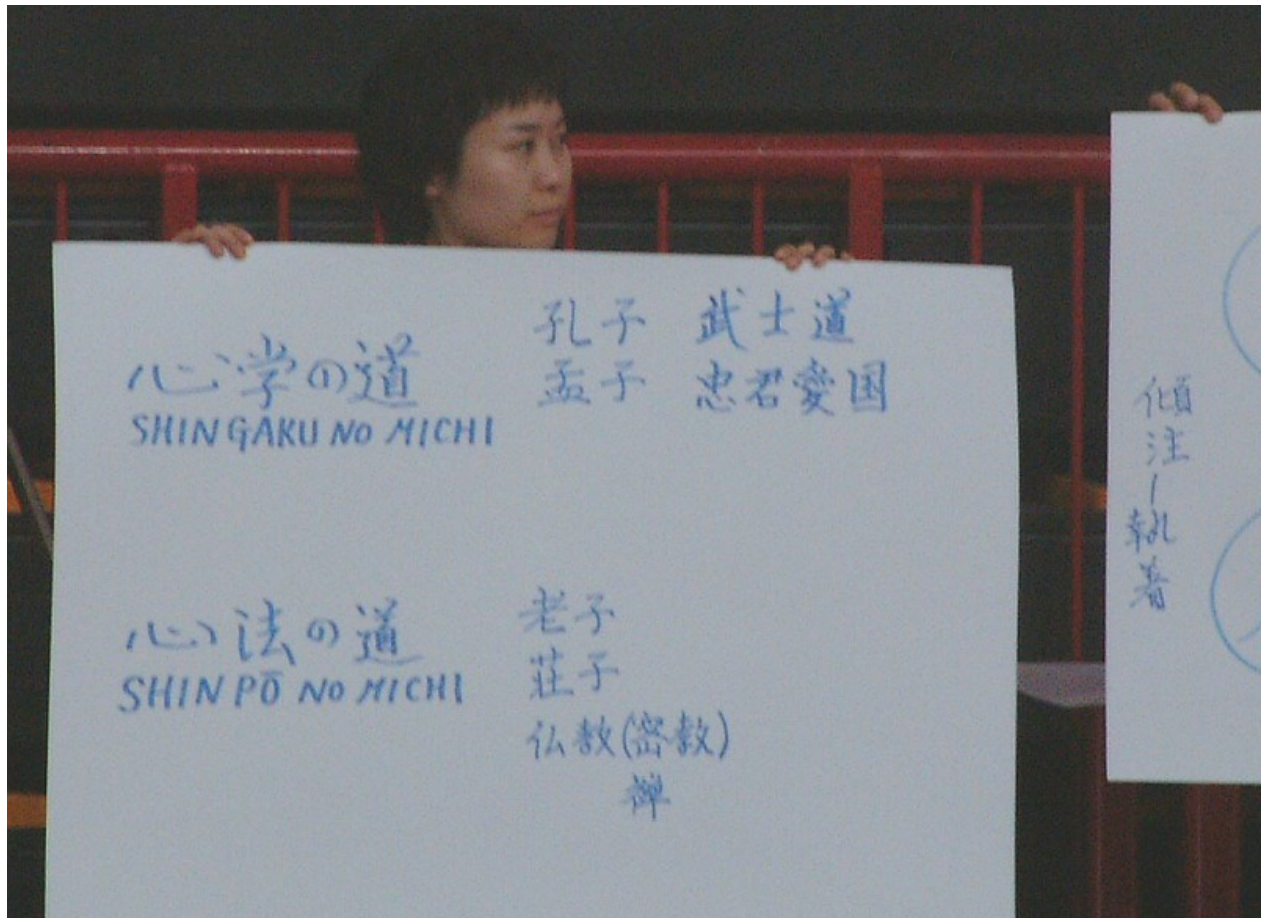 心学の道
SHINGAKU NO MICHI
孔子 武士道
孟子 忠君愛国
心法の道
SHINPŌ NO MICHI
老子
荘子
仏教(密教)
禅
傾注ー執着